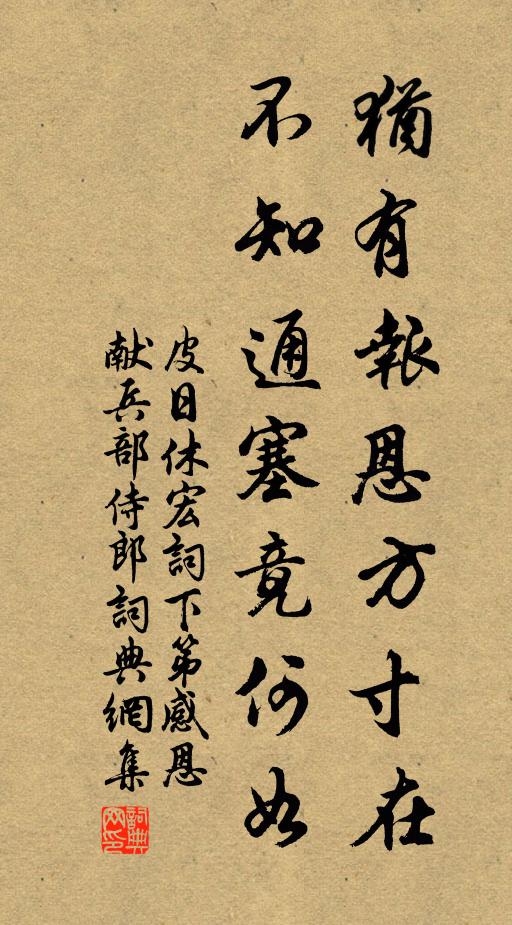 猶有報恩方寸在
不知通塞竟何如
皮日休宏詞下第感恩
献兵部侍郎詞典網集
詞典
网印